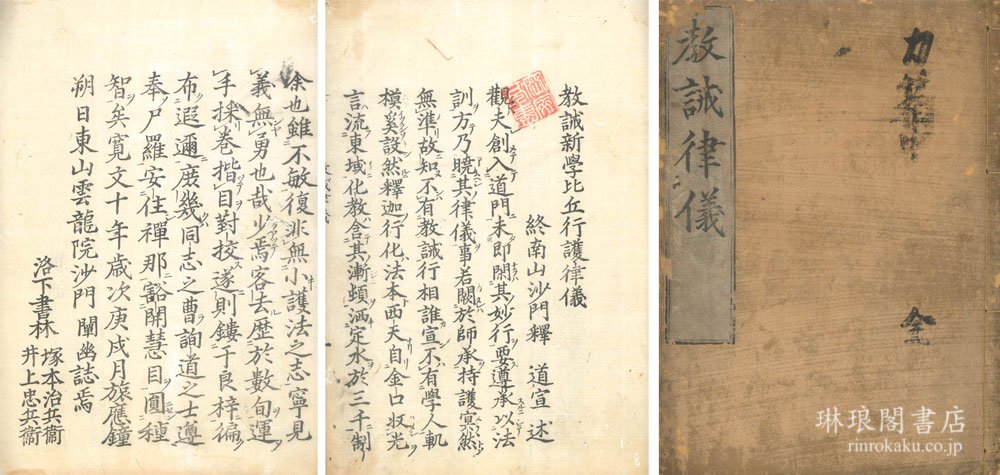 敎誡律儀
全
教誡新學比丘行護律儀
終南山沙門釋 道宣 述
觀夫創入道門未即閑其妙行要遵承以法
訓方乃曉其律儀事若闕於師承持護冥然
無準故知不有教誡行相誰宣不有學人軌
模奚設然釋迦行化法本西天自金口収光
言流東域化教含其漸頓洒定水於三千制
余也雖不敏復非無小護法之志寧見
義無勇也哉少焉客去歴於數旬運
手採巻揩目對挍遂則鏤于良梓徧
布遐邇庶幾同志之曹詢道之士遵
奉尸羅安住禪那豁開慧目圓種
智矣寛文十年歳次庚戌月旅應鐘
朔日東山雲龍院沙門 闡幽誌焉
洛下書林
塚本治兵衞
井上忠兵衞
琳琅閣書店
rinrokaku.co.jp